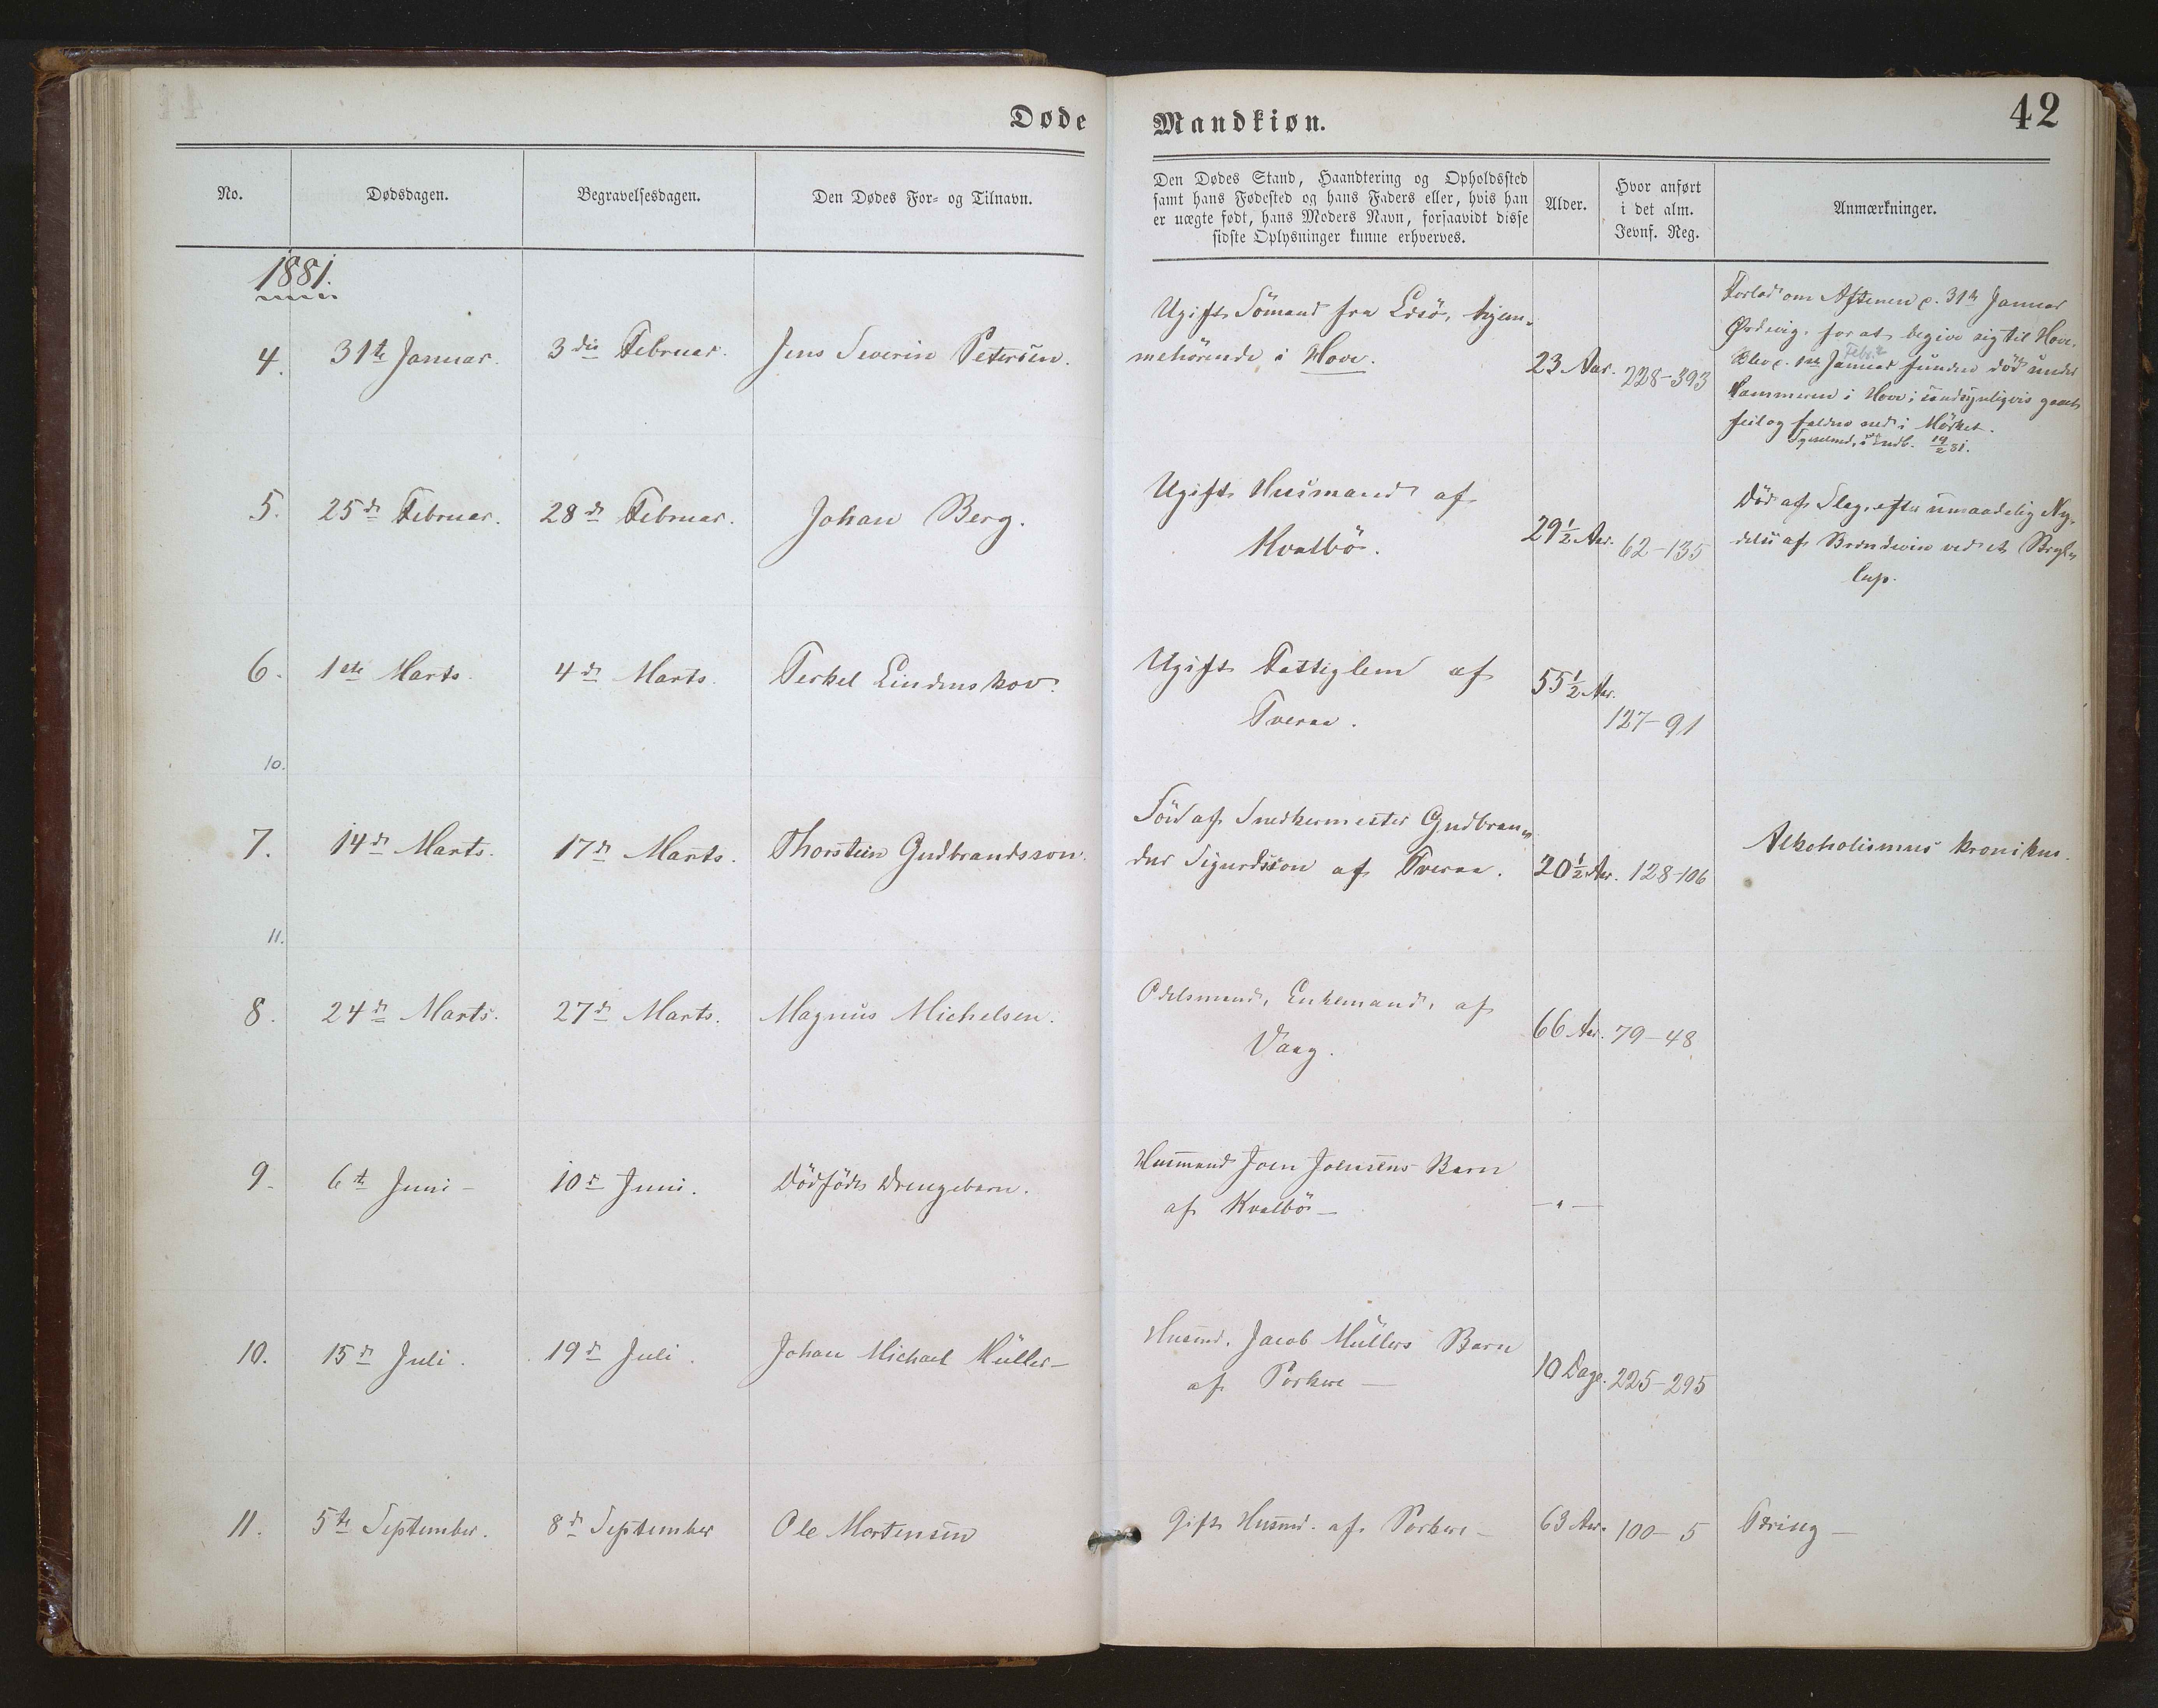 Døde
Mandkiøn.
42
No.
Dødsdagen.
Begravelsesdagen.
Den Dødes For- og Tilnavn.
Den Dødes Stand, Haandtering og Opholdssted
samt hans Fødested og hans Faders eller, hvis han
er uægte født, hans Moders Navn, forsaavidt disse
sidste Oplysninger kunne erhverves.
Alder.
Hvor anført
i det alm.
Jevnf. Reg.
Anmærkninger.
1881.
4. 31te Januar. 3die Februar. Jens Severin Petersen.
Ugift Sömand fra hjem-
mehörende i Hove.
23 Aar. 228-393
Forlod om Aftenen d. 31te Januar
Ørdevig, for at begive sig til Hove.
Febr.
Blev d. 1ste Januar funden död under
Hammeren i Hove; sandsynligvis gaaet
feil og falden ned i Mörket.
Sysselmd. Indb. 19/2 81.
5. 25de Februar. 28de Februar. Johan Berg.
Ugift Husmand af
Kvalbö.
29½ Aar. 62-135
Död af Slag, efter umaadelig Ny-
delse af Brændeviin ved et Bryl-
lup.
6. 1ste Marts. 4de Marts. Terkel Lindenskov.
Ugift Fattiglem af
Tveraa.
55½ Aar.
127-91
10.
7. 14de Marts. 17de Marts. Thorstein Gudbrandsson.
Sön af Snedkermester Gudbran-
dur Sigurdsson af Tveraa.
20½ Aar. 128-106
Alkoholismus kronikus.
11.
8. 24de Marts. 27de Marts. Magnus Michelsen.
Odelsmand, Enkemand, af
Vaag.
66 Aar. 79-48
9. 6te Juni - 10de Juni. Dödfödt Drengebarn.
Husmand Joen Joensens Barn
af Kvalbö -
- " -
10. 15de Juli. 19de Juli. Johan Michael Müller -
Husmd. Jacob Müllers Barn
af Porkere -
10 Dage. 225-295
11. 5te September. 8de September Ole Mortensen
Gift Husmd. af Porkere -
63 Aar. 100-5
Tæring -